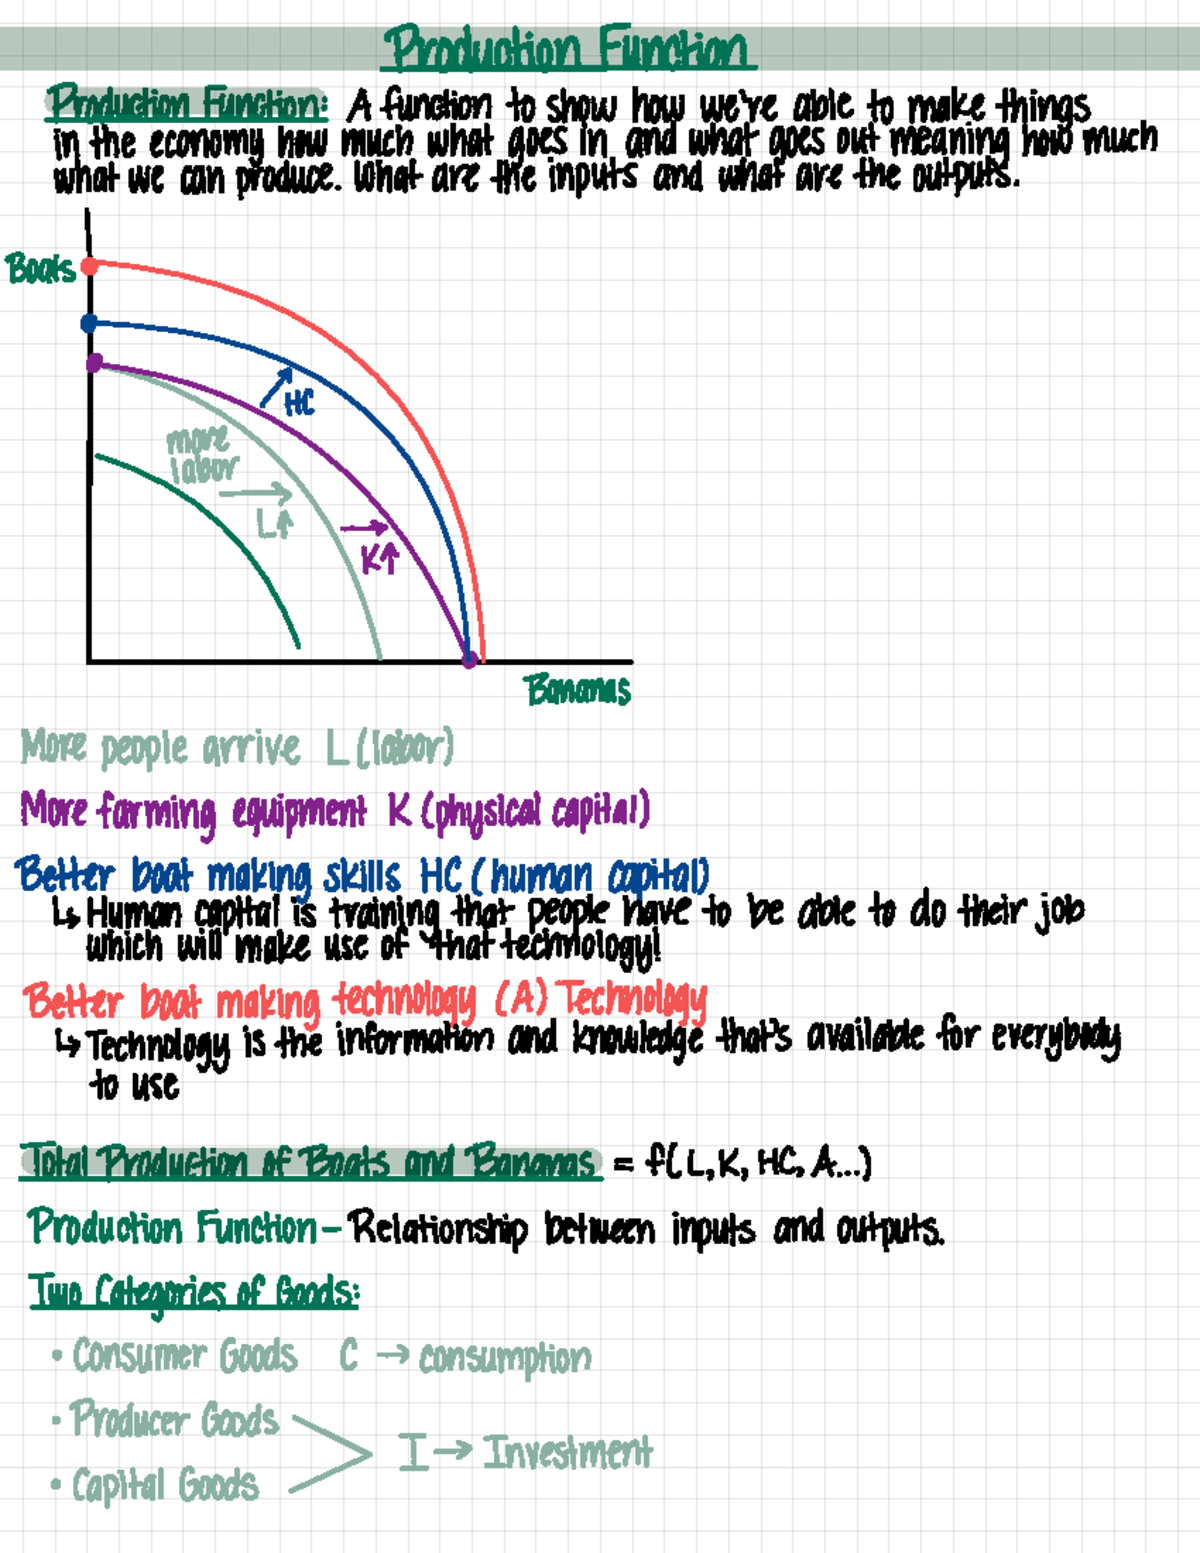 Production Function
Production Function: A function to show how we're able to make things
in the economy how much what goes in and what goes out meaning how much
what we can produce. What are the inputs and what are the outputs.
Boats
HC
more
labor
L↑
K↑
Bananas
More people arrive L (labor)
More farming equipment K (physical capital)
Better boat making skills HC (human capital)
↳ Human capital is training that people have to be able to do their job
which will make use of that technology!
Better boat making technology (A) Technology
↳ Technology is the information and knowledge that's available for everybody
to use
Total Production of Boats and Bananas = f(L, K, HC, A...)
Production Function - Relationship between inputs and outputs.
Two Categories of Goods:
• Consumer Goods C → consumption
• Producer Goods
I → Investment
• Capital Goods